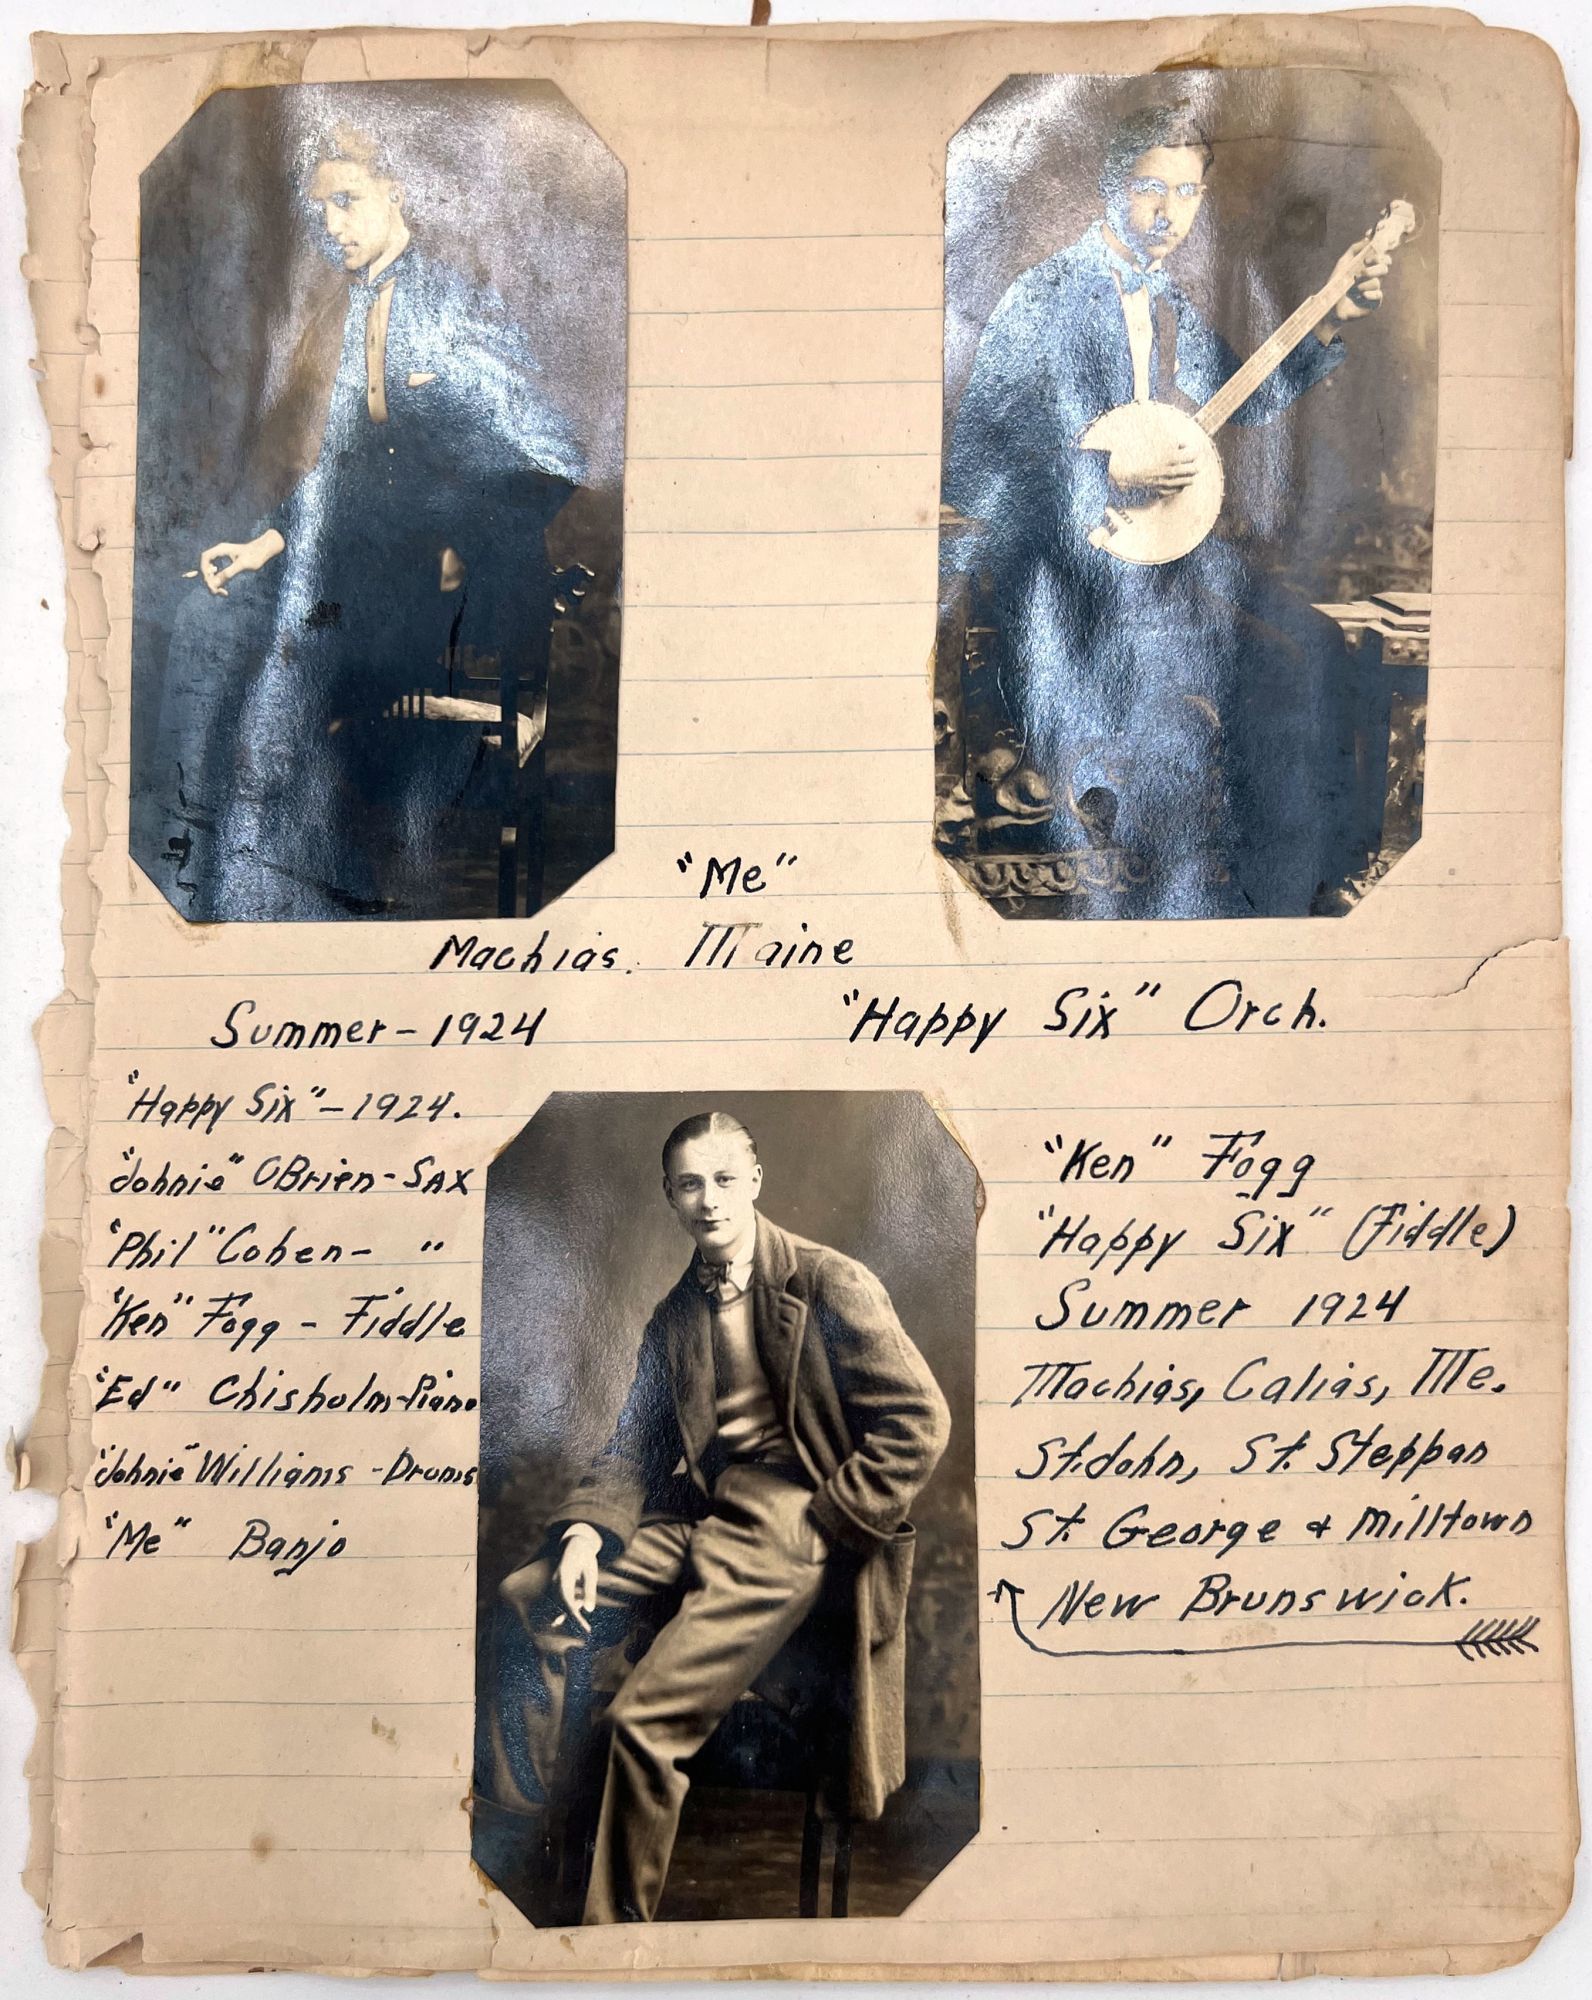 "Me"
Machias. Maine
Summer - 1924
"Happy Six" Orch.
"Happy Six" - 1924.
"Johnie" OBrien - SAX
"Phil" Cohen - "
"Ken" Fogg - Fiddle
"Ed" Chisholm - Piano
"Johnie" Williams - Drums
"Me" Banjo
"Ken" Fogg
"Happy Six" (Fiddle)
Summer 1924
Machias, Calias, Me.
St. John, St. Steppan
St. George & Milltown
New Brunswick.